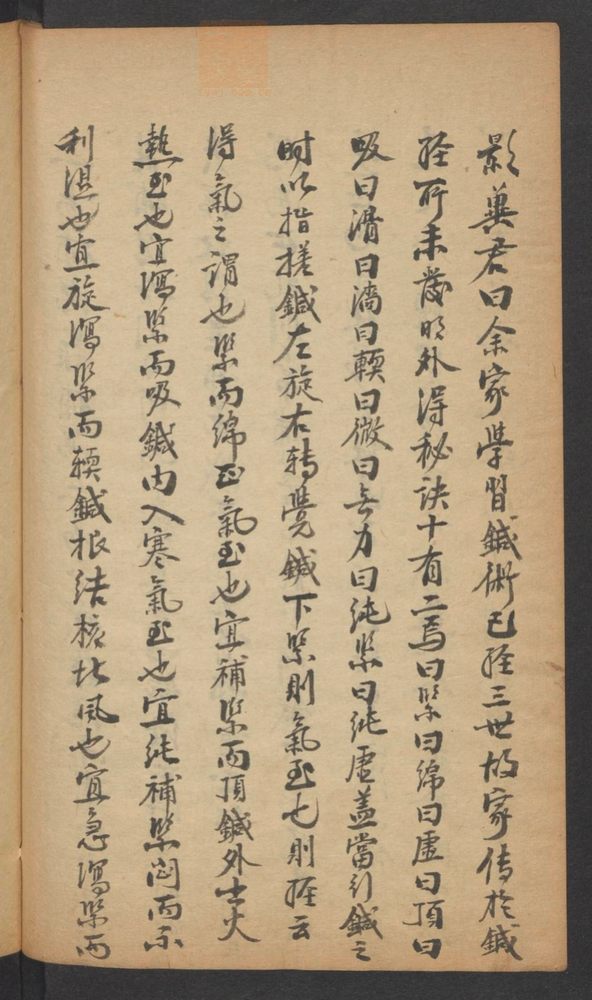 冀君曰余家學習鍼術已經三世故家傳於鍼
經所未發明外得秘訣十有二焉曰緊曰綿曰虛曰頂曰
吸曰滑曰濇曰輭曰微曰無力曰純緊曰純虛蓋當行鍼之
時以指搓鍼左旋右轉覺鍼下緊則氣至也則經云
得氣之謂也緊而綿正氣至也宜補緊而頂鍼外出火
熱至也宜瀉緊而吸鍼內入寒氣至也宜純補緊澀而不
利濕也宜旋瀉緊而輭鍼根結核比風也宜急瀉緊而